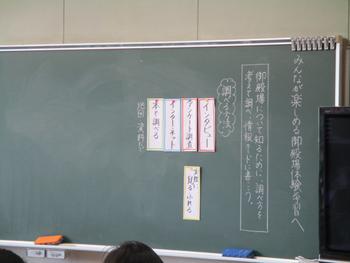 みんなが楽しめる御殿場体験学習へ
御殿場について知るために、調べ方を
考えて調べ、情報カードに書こう。
調べる方法
インタビュー
アンケート調査
インターネット
本で調べる
見る ふれる